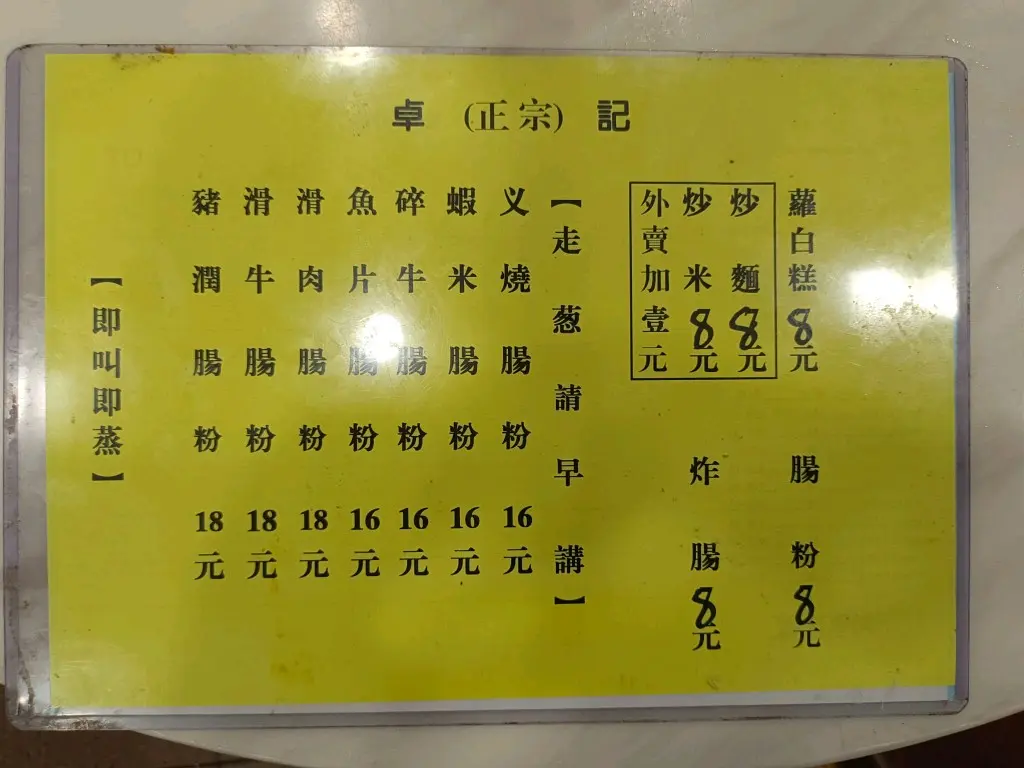 卓(正宗)記
蘿白糕8元
腸粉8元
炒麵8元
炒米8元
外賣加壹元
炸腸8元
【走葱請早講】
义燒腸粉16元
蝦米腸粉16元
碎牛腸粉16元
魚片腸粉16元
滑肉腸粉18元
滑牛腸粉18元
豬潤腸粉18元
【即叫即蒸】